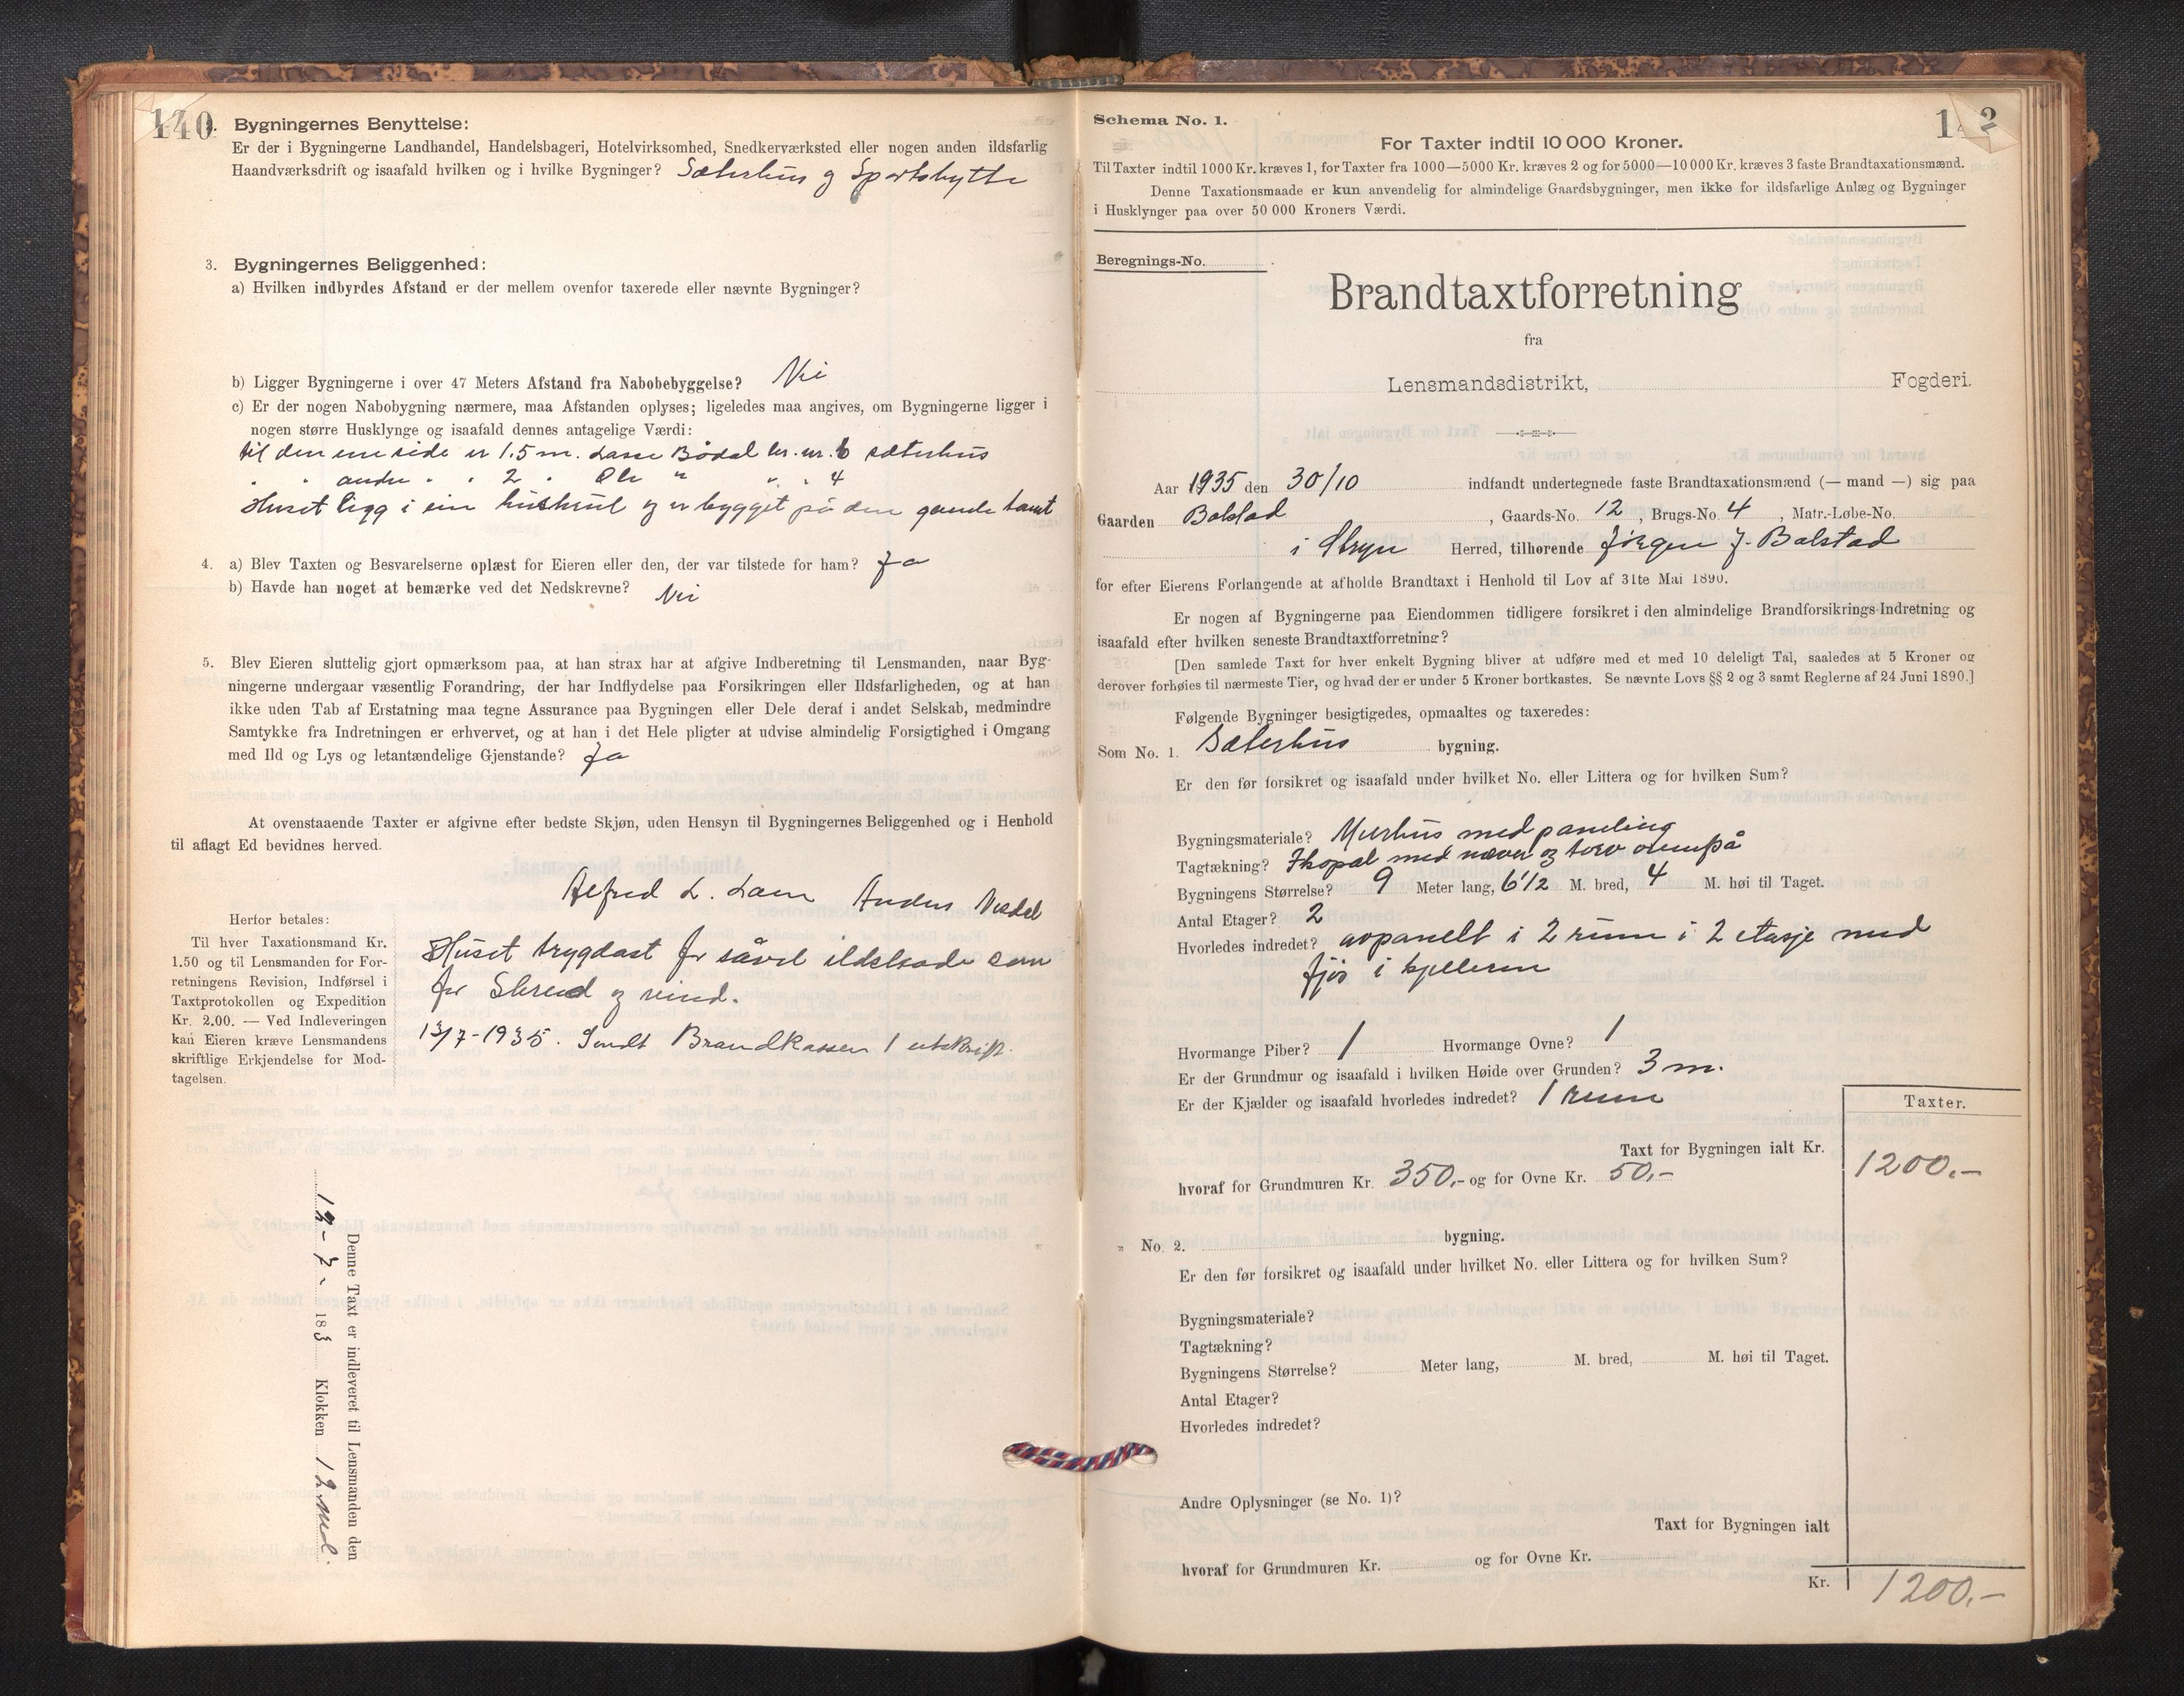 140
Bygningernes Benyttelse:
Er der i Bygningerne Landhandel, Handelsbageri, Hotelvirksomhed, Snedkerværksted eller nogen anden ildsfarlig
Haandværksdrift og isaafald hvilken og i hvilke Bygninger? Sæterhus og Sportshytte
3. Bygningernes Beliggenhed:
a) Hvilken indbyrdes Afstand er der mellem ovenfor taxerede eller nævnte Bygninger?
b) Ligger Bygningerne i over 47 Meters Afstand fra Nabobebyggelse? Nei
c) Er der nogen Nabobygning nærmere, maa Afstanden oplyses; ligeledes maa angives, om Bygningerne ligger i
nogen større Husklynge og isaafald dennes antagelige Værdi:
til den ene side er 1.5 m. Lasse Bødal br. nr. 6 sæterhus
" andre " " 2 " Ole " " " 4
Huset ligg i ein huskrul og er bygget på den gamle tomt
4. a) Blev Taxten og Besvarelserne oplæst for Eieren eller den, der var tilstede for ham? Ja
b) Havde han noget at bemærke ved det Nedskrevne? Nei
5. Blev Eieren sluttelig gjort opmærksom paa, at han strax har at afgive Indberetning til Lensmanden, naar Byg-
ningerne undergaar væsentlig Forandring, der har Indflydelse paa Forsikringen eller Ildsfarligheden, og at han
ikke uden Tab af Erstatning maa tegne Assurance paa Bygningen eller Dele deraf i andet Selskab, medmindre
Samtykke fra Indretningen er erhvervet, og at han i det Hele pligter at udvise almindelig Forsigtighed i Omgang
med Ild og Lys og letantændelige Gjenstande? Ja
At ovenstaaende Taxter er afgivne efter bedste Skjøn, uden Hensyn til Bygningernes Beliggenhed og i Henhold
til aflagt Ed bevidnes herved.
Alfred L. Loen Anders Vesdel
Herfor betales:
Til hver Taxationsmand Kr.
1.50 og til Lensmanden for For-
retningens Revision, Indførsel i
Taxtprotokollen og Expedition
Kr. 2.00. — Ved Indleveringen
kan Eieren kræve Lensmandens
skriftlige Erkjendelse for Mod-
tagelsen.
Huset trygdast for såvel ildskade som
for Skred og vind.
13/7-1935. Sendt Brandkassen 1 utskrift.
Denne Taxt er indleveret til Lensmanden den
12-7- 183 Klokken 12 md.
Schema No. 1.
For Taxter indtil 10 000 Kroner.
Til Taxter indtil 1000 Kr. kræves 1, for Taxter fra 1000—5000 Kr. kræves 2 og for 5000—10 000 Kr. kræves 3 faste Brandtaxationsmænd.
Denne Taxationsmaade er kun anvendelig for almindelige Gaardsbygninger, men ikke for ildsfarlige Anlæg og Bygninger
i Husklynger paa over 50 000 Kroners Værdi.
Beregnings-No.
Brandtaxtforretning
fra
Lensmandsdistrikt, Fogderi.
Aar 1935 den 30/10 indfandt undertegnede faste Brandtaxationsmænd (— mand —) sig paa
Gaarden Bolstad, Gaards-No. 12, Brugs-No. 4, Matr.-Løbe-No.
i Stryn Herred, tilhørende Jørgen J. Bolstad
for efter Eierens Forlangende at afholde Brandtaxt i Henhold til Lov af 31te Mai 1890.
Er nogen af Bygningerne paa Eiendommen tidligere forsikret i den almindelige Brandforsikrings-Indretning og
isaafald efter hvilken seneste Brandtaxtforretning?
[Den samlede Taxt for hver enkelt Bygning bliver at udføre med et med 10 deleligt Tal, saaledes at 5 Kroner og
derover forhøies til nærmeste Tier, og hvad der er under 5 Kroner bortkastes. Se nævnte Lovs §§ 2 og 3 samt Reglerne af 24 Juni 1890.]
Følgende Bygninger besigtigedes, opmaaltes og taxeredes:
Som No. 1. Sæterhus bygning.
Er den før forsikret og isaafald under hvilket No. eller Littera og for hvilken Sum?
Bygningsmateriale? Murhus med paneling
Tagtækning? Ikopal med never og torv ovenpå
Bygningens Størrelse? 9 Meter lang, 6 1/2 M. bred, 4 M. høi til Taget.
Antal Etager? 2
Hvorledes indredet? avpanelt i 2 rum i 2 etasje med
fjøs i kjelleren
Hvormange Piber? 1 Hvormange Ovne? 1
Er der Grundmur og isaafald i hvilken Høide over Grunden? 3 m.
Er der Kjælder og isaafald hvorledes indredet? 1 rum
Taxter.
Taxt for Bygningen ialt Kr. 1200.-
hvoraf for Grundmuren Kr. 350.- og for Ovne Kr. 50.-
" No. 2. bygning.
Er den før forsikret og isaafald under hvilket No. eller Littera og for hvilken Sum?
Bygningsmateriale?
Tagtækning?
Bygningens Størrelse? Meter lang, M. bred, M. høi til Taget.
Antal Etager?
Hvorledes indredet?
Andre Oplysninger (se No. 1)?
Taxt for Bygningen ialt
hvoraf for Grundmuren Kr. og for Ovne Kr.
Kr. 1200.-